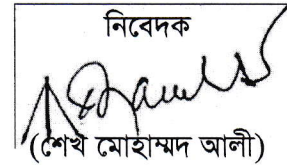 নিবেদক
(শেখ মোহাম্মদ আলী)